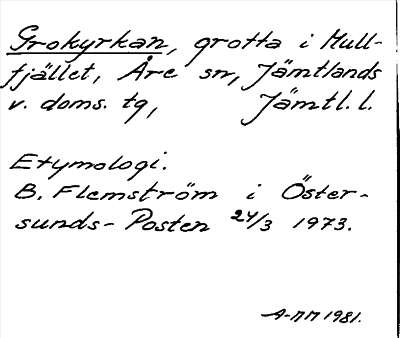 Grokyrkan, grotta i Mull-
fjället, Åre sn, Jämtlands
v. doms. tg, Jämtl. l.
Etymologi.
B. Flemström i Öster-
sunds-Posten 24/3 1973.
A-MM 1981.